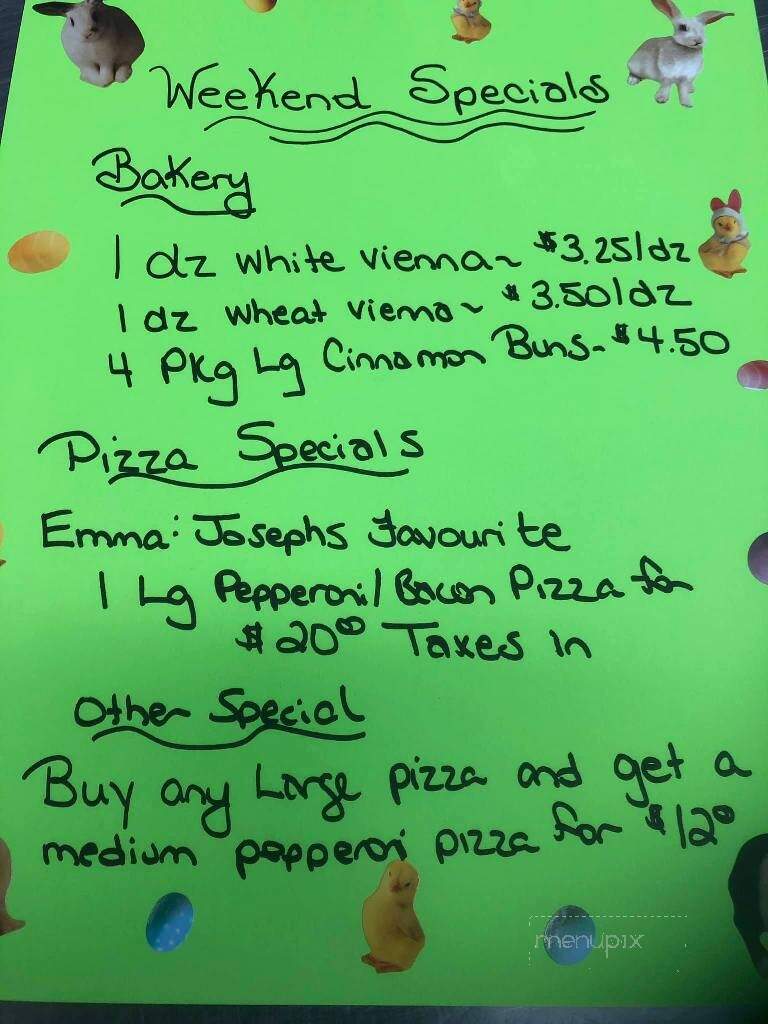 Weekend Specials
Bakery
1 dz white vienna ~ $3.25/dz
1 dz wheat vienna ~ $3.50/dz
4 Pkg Lg Cinnamon Buns - $4.50
Pizza Specials
Emma: Josephs Favourite
1 Lg Pepperoni/Bacon Pizza for
$20⁰⁰ Taxes in
Other Special
Buy any Large pizza and get a
medium pepperoni pizza for $12⁰
menupix